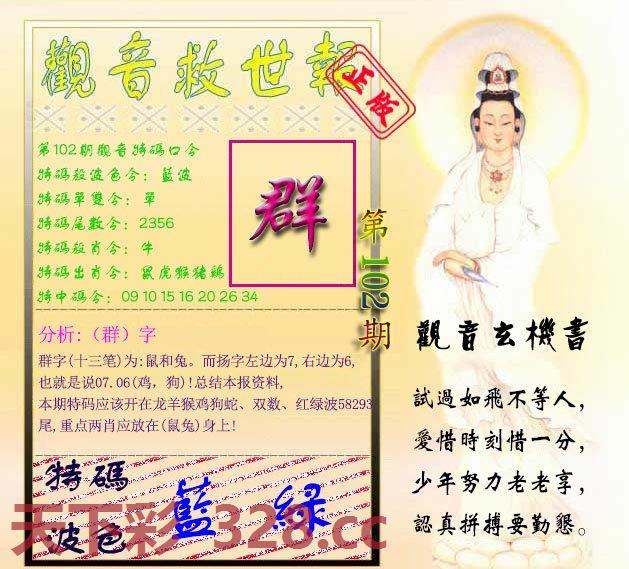 觀音救世報
正版
第102期觀音特碼口令
特碼殺波色令：藍波
特碼單雙令：單
特碼尾數令：2356
特碼殺肖令：牛
特碼出肖令：鼠虎猴猪鷄
特中碼令：09 10 15 16 20 26 34
群
第102期
分析:（群）字
群字(十三笔)为:鼠和兔。而扬字左边为7,右边为6,
也就是说07.06(鸡，狗)!总结本报资料,
本期特码应该开在龙羊猴鸡狗蛇、双数、红绿波58293
尾,重点两肖应放在(鼠兔)身上!
特碼
波色
藍 綠
天下彩 328.cc
觀音玄機書
試過如飛不等人，
愛惜時刻惜一分，
少年努力老老享，
認真拼搏要勤懇。